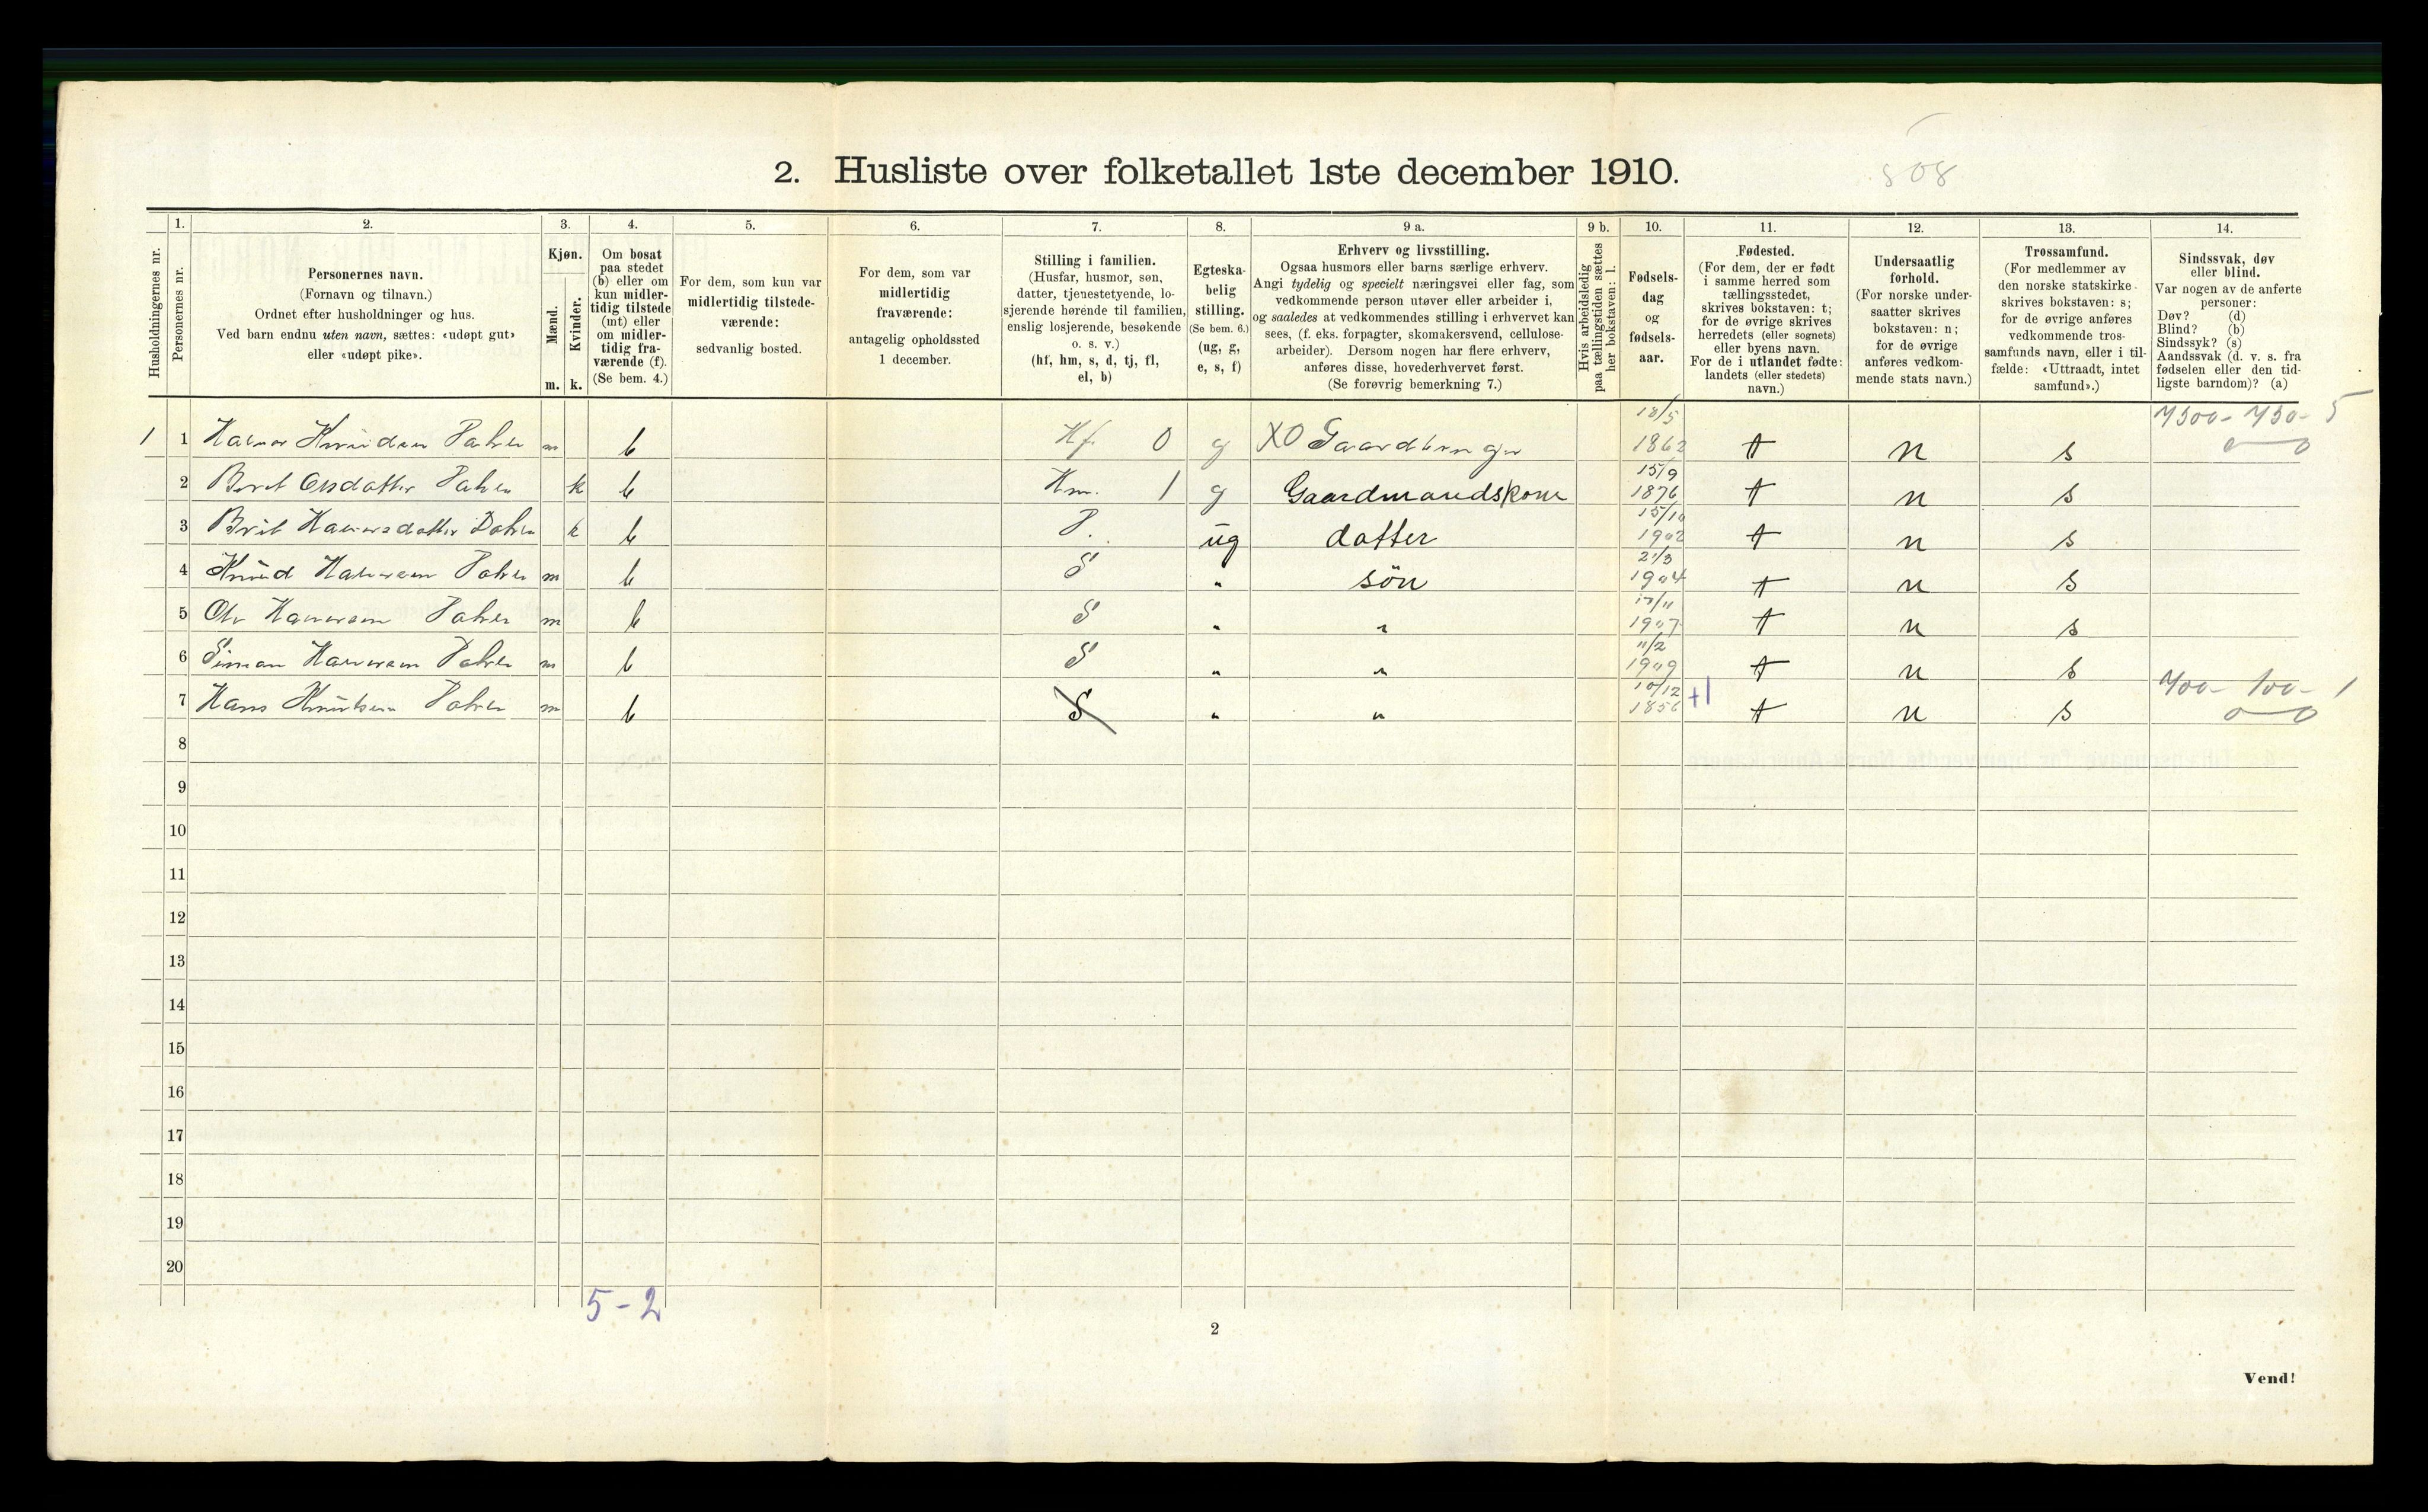 2. Husliste over folketallet 1ste december 1910.
508
Husholdningernes nr.
1.
Personernes nr.
2.
Personernes navn.
(Fornavn og tilnavn.)
Ordnet efter husholdninger og hus.
Ved barn endnu uten navn, sættes: «udøpt gut»
eller «udøpt pike».
3.
Kjøn.
Mænd.
Kvinder.
m. k.
4.
Om bosat
paa stedet
(b) eller om
kun midler-
tidig tilstede
(mt) eller
om midler-
tidig fra-
værende (f).
(Se bem. 4.)
5.
For dem, som kun var
midlertidig tilstede-
værende:
sedvanlig bosted.
6.
For dem, som var
midlertidig
fraværende:
antagelig opholdssted
1 december.
7.
Stilling i familien.
(Husfar, husmor, søn,
datter, tjenestetyende, lo-
sjerende hørende til familien,
enslig losjerende, besøkende
o. s. v.)
(hf, hm, s, d, tj, fl,
el, b)
8.
Egteska-
belig
stilling.
(Se bem. 6.)
(ug, g,
e, s, f)
9 a.
Erhverv og livsstilling.
Ogsaa husmors eller barns særlige erhverv.
Angi tydelig og specielt næringsvei eller fag, som
vedkommende person utøver eller arbeider i,
og saaledes at vedkommendes stilling i erhvervet kan
sees, (f. eks. forpagter, skomakersvend, cellulose-
arbeider). Dersom nogen har flere erhverv,
anføres disse, hovederhvervet først.
(Se forøvrig bemerkning 7.)
9 b.
Hvis arbeidsledig
paa tællingstiden sættes
her bokstaven: l.
10.
Fødsels-
dag
og
fødsels-
aar.
11.
Fødested.
(For dem, der er født
i samme herred som
tællingsstedet,
skrives bokstaven: t;
for de øvrige skrives
herredets (eller sognets)
eller byens navn.
For de i utlandet fødte:
landets (eller stedets)
navn.)
12.
Undersaatlig
forhold.
(For norske under-
saatter skrives
bokstaven: n;
for de øvrige
anføres vedkom-
mende stats navn.)
13.
Trossamfund.
(For medlemmer av
den norske statskirke
skrives bokstaven: s;
for de øvrige anføres
vedkommende tros-
samfunds navn, eller i til-
fælde: «Uttraadt, intet
samfund».)
14.
Sindssvak, døv
eller blind.
Var nogen av de anførte
personer:
Døv? (d)
Blind? (b)
Sindssyk? (s)
Aandssvak (d. v. s. fra
fødselen eller den tid-
ligste barndom)? (a)
1 1 Knudsen m b Hf. 0 g X0 18/5 1862 t n s 0 0
2 k b Hm. 1 g Gaardmandskone 15/9 1876 t n s
3 k b ug datter 15/10 1902 t n s
4 Knud m b S " søn 21/3 1904 t n s
5 m b S " " 1907 t n s
6 Simon m b S " " 11/2 1909 t n s
7 Hans m b S " " 10/12 1856 +1 t n s 0 0
8
9
10
11
12
13
14
15
16
17
18
19
20
5-2
2
Vend!